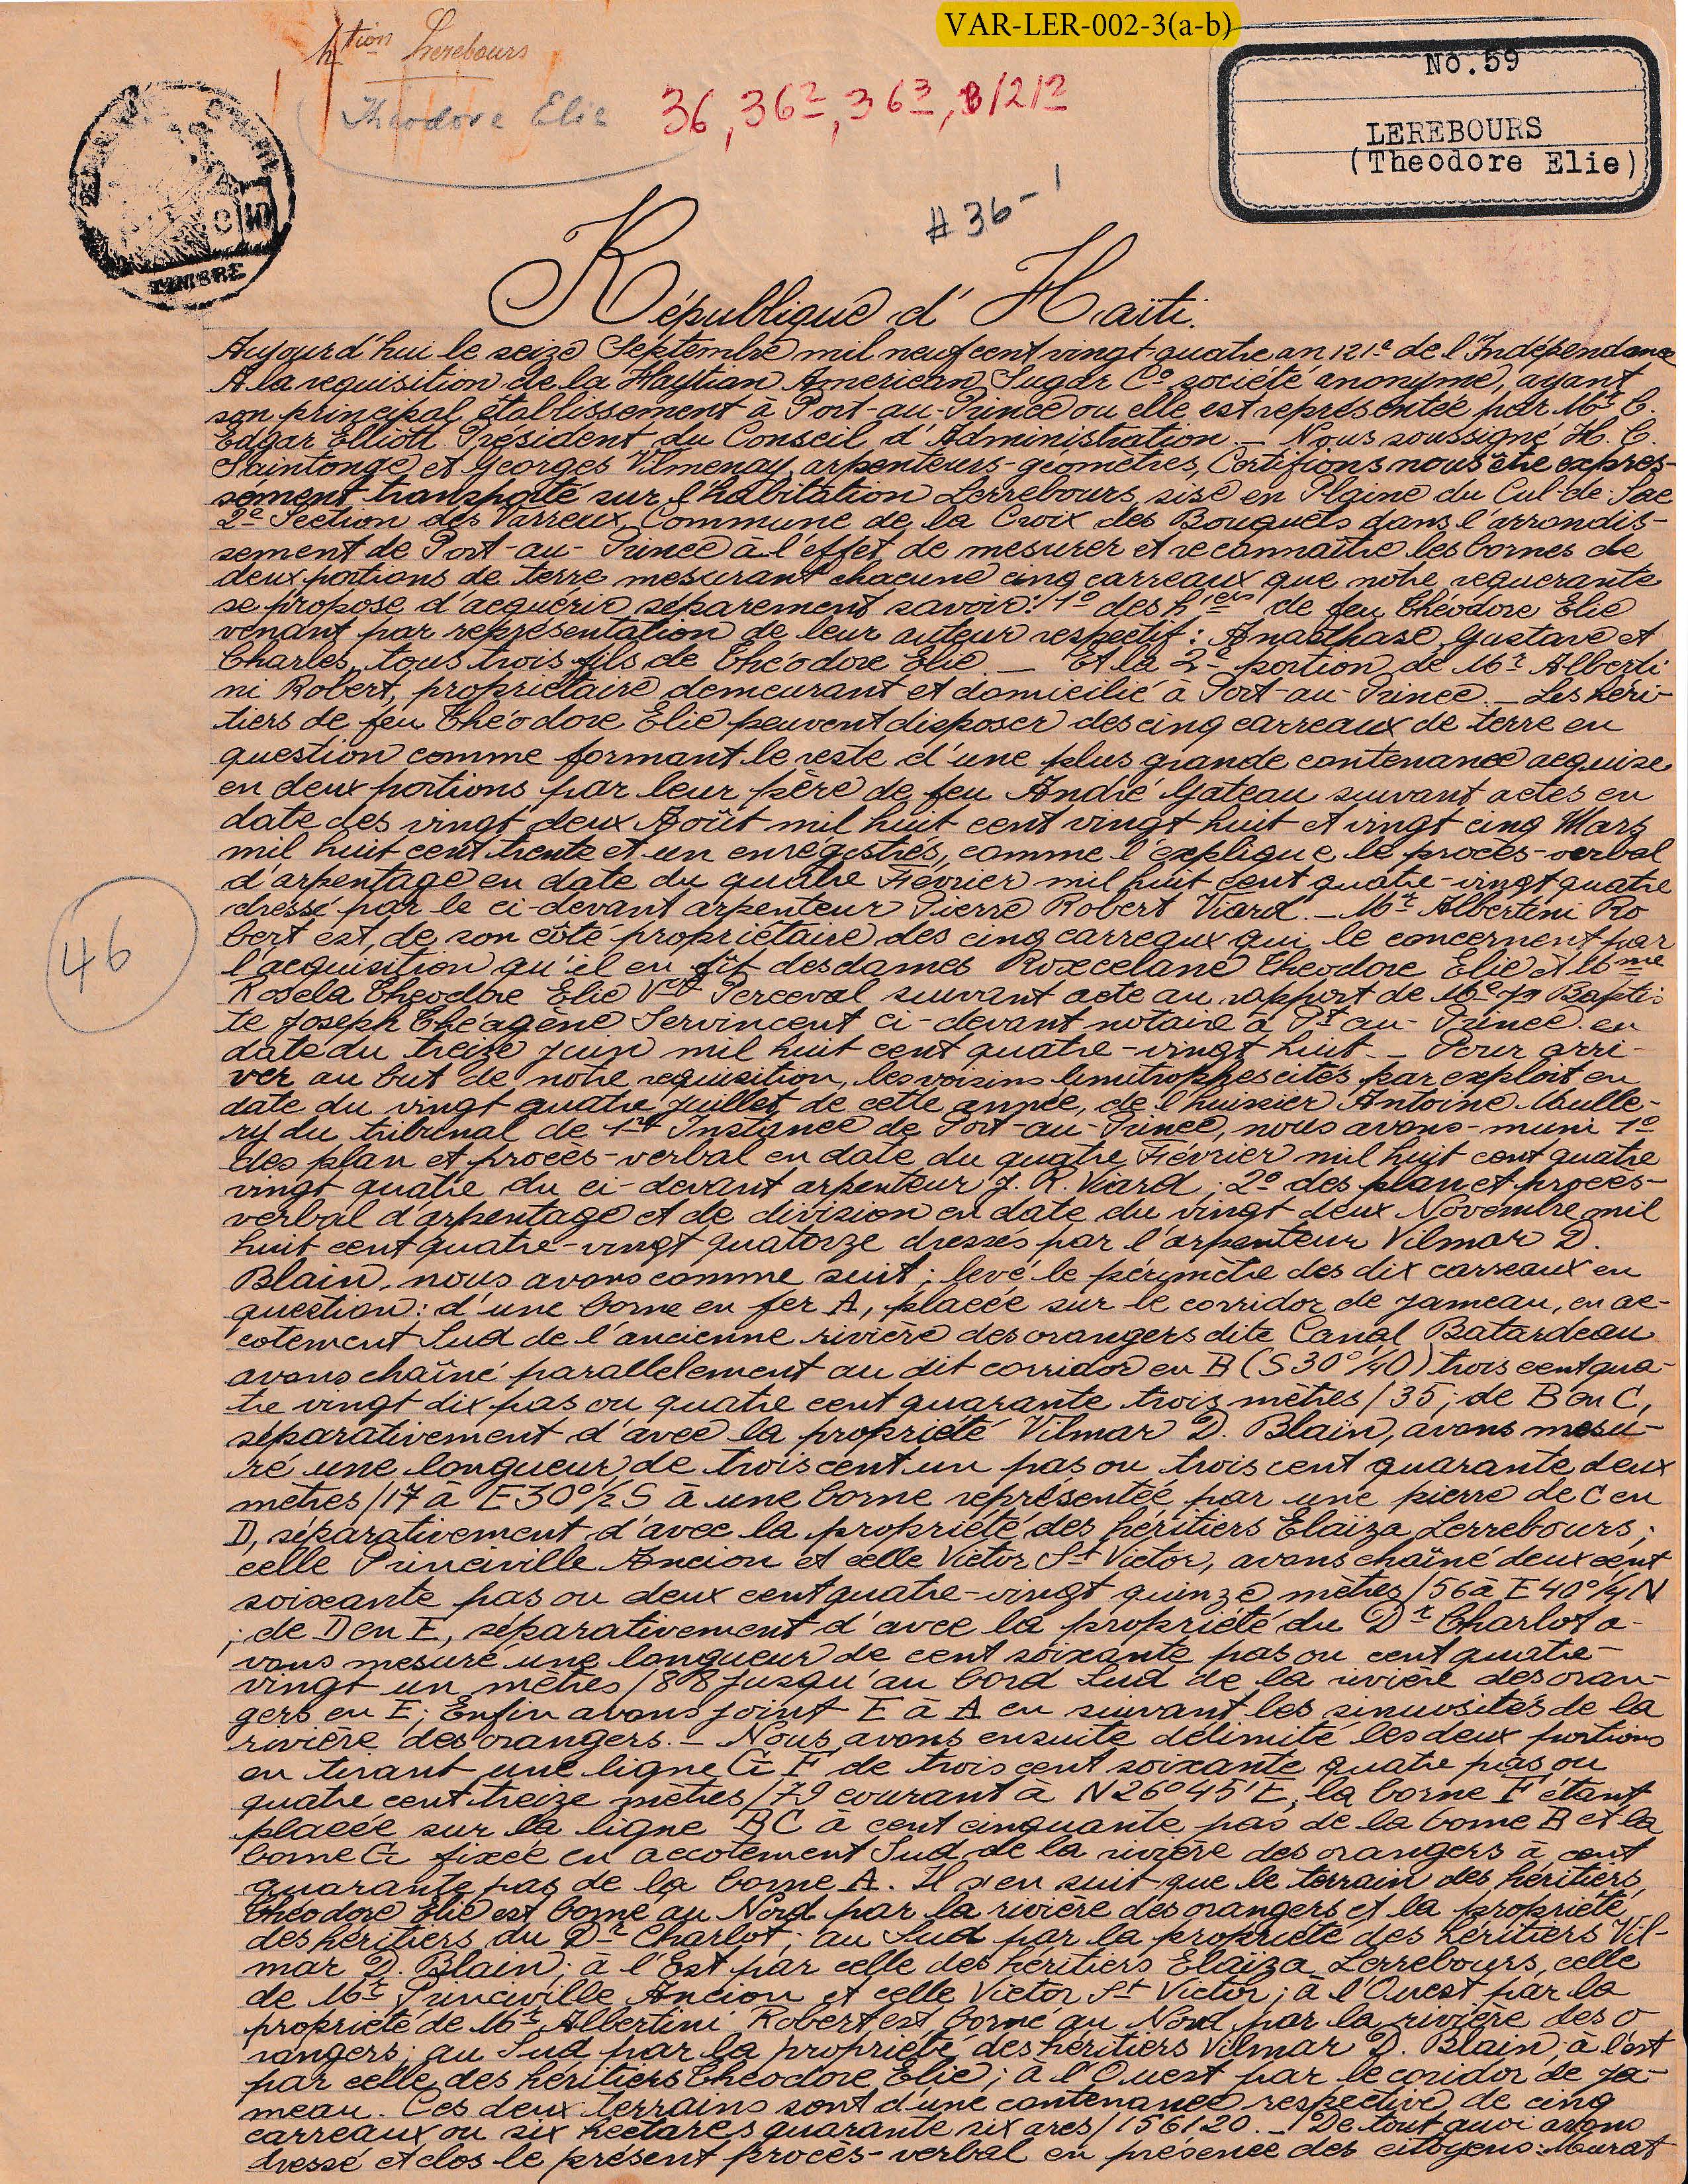 VAR-LER-002-3(a-b)
No.59
LEREBOURS
(Theodore Elie)
htion Lerebours
Theodore Elie
36, 36², 36³, 8/2/2
#36-1
TIMBRE
République d'Haïti.
Aujourd'hui le seize Septembre mil neuf cent vingt-quatre an 121e de l'Indépendance
A la requisition de la Haytian American Sugar Co société anonyme, ayant
son principal établissement à Port-au-Prince ou elle est représentée par Mr C.
Edgar Elliott Président du Conseil d'Administration. — Nous soussigné H. C.
Saintonge et Georges Vilmenay, arpenteurs-géomètres, Certifions nous être expres-
sément transporté sur l'habitation Lerrebours, sise en Plaine du Cul-de-Sac
2e Section des Varreux, Commune de la Croix des Bouquets dans l'arrondis-
sement de Port-au-Prince à l'effet de mesurer et reconnaître les bornes de
deux portions de terre mesurant chacune cinq carreaux que notre requerante
se propose d'acquérir séparement savoir: 1o des hiers de feu Théodore Elie
venant par représentation de leur auteur respectif: Anasthase, Gustave et
Charles, tous trois fils de Théodore Elie. — Et la 2e portion de Mr Alberti-
ni Robert, propriétaire demeurant et domicilié à Port-au-Prince. — Les héri-
tiers de feu Théodore Elie peuvent disposer des cinq carreaux de terre en
question comme formant le reste d'une plus grande contenance acquise
en deux portions par leur père de feu André Gateau suivant actes en
date des vingt deux Août mil huit cent vingt huit et vingt cinq Mars
mil huit cent trente et un enregistrés, comme l'explique le procès-verbal
d'arpentage en date du quatre Février mil huit cent quatre-vingt quatre
dressé par le ci-devant arpenteur Pierre Robert Viard. — Mr Albertini Ro
bert est, de son côté propriétaire des cinq carreaux qui le concernent par
l'acquisition qu'il en fit des dames Roxcelane Theodore Elie et Mme
Rosela Theodore Elie Vve Perceval suivant acte au rapport de Me Jn Baptis-
te Joseph Théagène Servincent ci-devant notaire à Pt-au-Prince en
date du treize juin mil huit cent quatre-vingt huit. — Pour arri-
ver au but de notre requisition, les voisins limitrophes cités par exploit en
date du vingt quatre juillet de cette année, de l'huissier Antoine Mulle-
ry du tribunal de 1re Instance de Port-au-Prince, nous avons-muni 1o
des plan et procès-verbal en date du quatre Février mil huit cent quatre
vingt quatre du ci-devant arpenteur J. R. Viard; 2o des plan et procès-
verbal d'arpentage et de division en date du vingt deux Novembre mil
huit cent quatre-vingt quatorze dressés par l'arpenteur Vilmar D.
Blain, nous avons comme suit; levé le périmètre des dix carreaux en
question: d'une borne en fer A, placée sur le corridor de Jameau, en ac-
cotement Sud de l'ancienne rivière des orangers dite Canal Batardeau
avons chaîné parallelement au dit corridor en B (S 30°/40) trois cent qua-
tre vingt dix pas ou quatre cent quarante trois mètres/35; de B en C,
séparativement d'avec la propriété Vilmar D. Blain, avons mesu-
ré une longueur de trois cent un pas ou trois cent quarante deux
mètres/17 à E 30°1/2 S à une borne représentée par une pierre de C en
D, séparativement d'avec la propriété des héritiers Elaïza Lerrebours,
celle Princiville Ancion et celle Victor St Victor, avons chaîné deux cent
soixante pas ou deux cent quatre-vingt quinze mètres/56 à E 40°1/4 N
; de D en E, séparativement d'avec la propriété du Dr Charlot a-
vons mesuré une longueur de cent soixante pas ou cent quatre-
vingt un mètres/88 jusqu'au bord Sud de la rivière des oran-
gers en E; Enfin avons joint E à A en suivant les sinuosités de la
rivière des orangers. — Nous avons ensuite délimité les deux portions
en tirant une ligne G F de trois cent soixante quatre pas ou
quatre cent treize mètres/79 courant à N 26° 45' E, la borne F étant
placée sur la ligne BC à cent cinquante pas de la borne B et la
borne G fixée en accotement Sud de la rivière des orangers à cent
quarante pas de la borne A. Il s'en suit que le terrain des héritiers
Théodore Elie est borné au Nord par la rivière des orangers et la propriété
des héritiers du Dr Charlot; au Sud par la propriété des héritiers Vil-
mar D. Blain; à l'Est par celle des héritiers Elaïza Lerrebours, celle
de Mr Princiville Ancion et celle Victor St Victor; à l'Ouest par la
propriété de Mr Albertini Robert est borné au Nord par la rivière des o
rangers; au Sud par la propriété des héritiers Vilmar D. Blain, à l'est
par celle des héritiers Théodore Elie; à l'Ouest par le coridor de Ja-
meau. Ces deux terrains sont d'une contenance respective de cinq
carreaux ou six hectares quarante six ares/156120. — De tout quoi avons
dressé et clos le présent procès-verbal en présence des citoyens: Murat
46